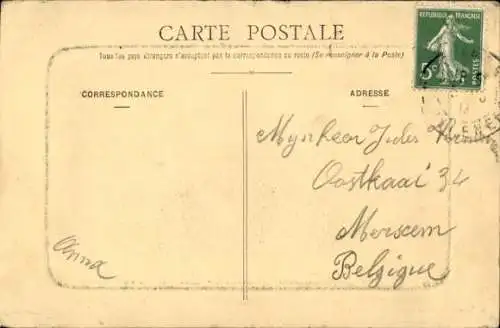 CARTE POSTALE
Tous les pays étrangers n'acceptent pas la correspondance au recto (Se renseigner à la Poste)
CORRESPONDANCE
ADRESSE
REPUBLIQUE FRANÇAISE
POSTES
5c
Mynheer Jules
Oostkaai 34
Merxem
Belgique
Anna